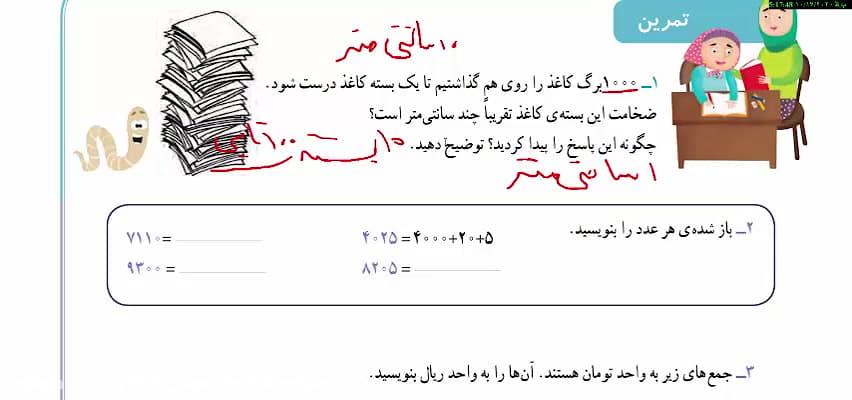 تمرین
۱۰ سانتی متر
۱ــ ۱۰۰۰ برگ کاغذ را روی هم گذاشتیم تا یک بسته کاغذ درست شود.
ضخامت این بسته‌ی کاغذ تقریباً چند سانتی‌متر است؟
چگونه این پاسخ را پیدا کردید؟ توضیح دهید.
۱۰ بسته ۱۰۰ تایی
۱ سانتی متر
۲ــ باز شده‌ی هر عدد را بنویسید.
۴۰۲۵ = ۴۰۰۰+۲۰+۵
۷۱۱۰ =
۸۲۰۵ =
۹۳۰۰ =
۳ــ جمع‌های زیر به واحد تومان هستند. آن‌ها را به واحد ریال بنویسید.